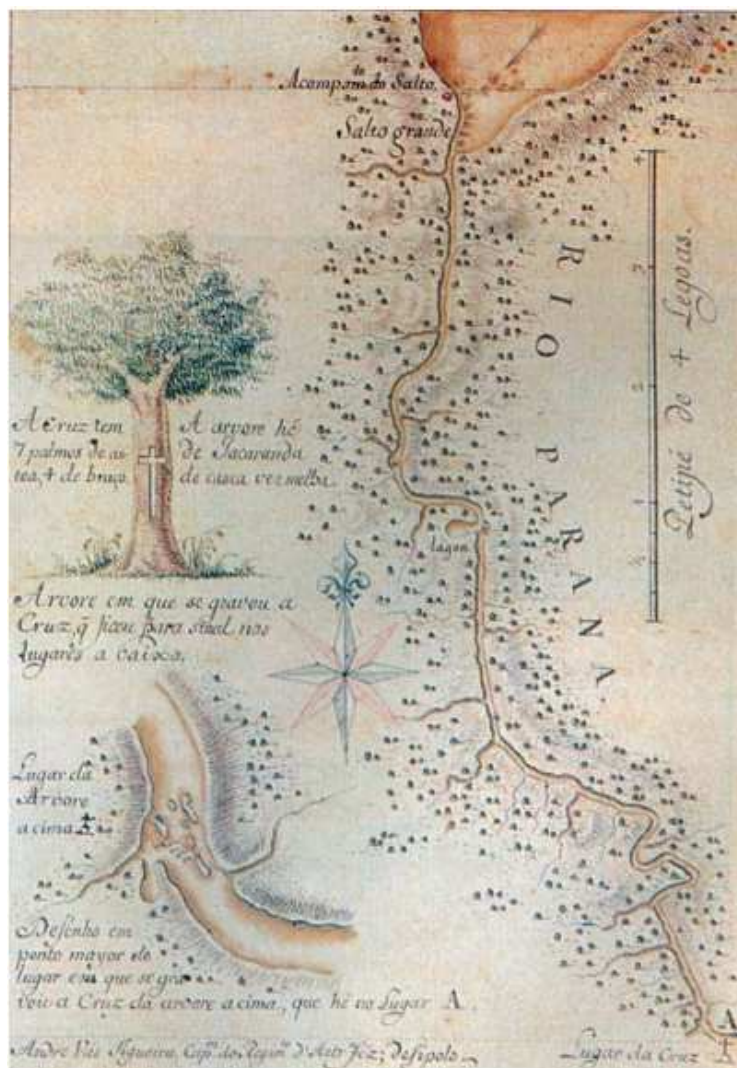 Acompam.to do Salto.
Salto grande
RIO PARANA
4
3
2
1
½
Petipé de 4 Legoas.
A Cruz tem
7 palmos de as
tea, 4 de braço.
A arvore hé
de Jacaranda
de casca vermelha
lagoa
Arvore em que se gravou a
Cruz, q̃ ficou para sinal nos
lugares a baixo.
Lugar da
Arvore
acima
Desenho em
ponto mayor do
lugar em que se gra
vou a Cruz da arvore acima, que hé no Lugar A.
A
Lugar da Cruz
Andre Vas Figueira, Cap.m do Regim.to d'Art.a fez;